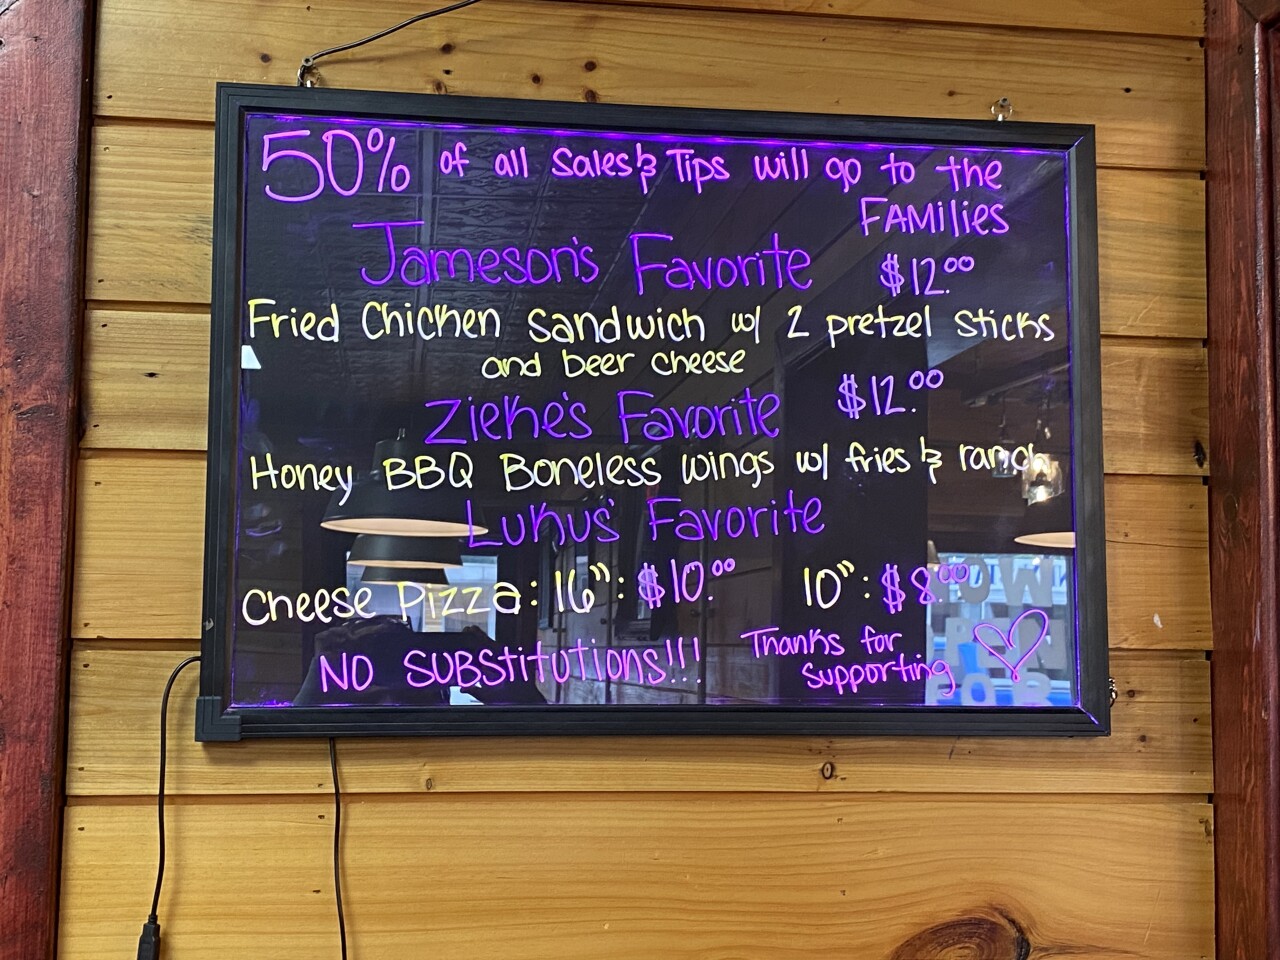 50% of all Sales & Tips will go to the
FAMilies
Jameson's Favorite $12.00
Fried Chicken Sandwich w/ 2 pretzel sticks
and beer cheese
Zieke's Favorite $12.00
Honey BBQ Boneless wings w/ fries & ranch
Lukus' Favorite
Cheese Pizza: 16": $10.00 10": $8.00
NO SUBStitutiONS!!! Thanks for
supporting